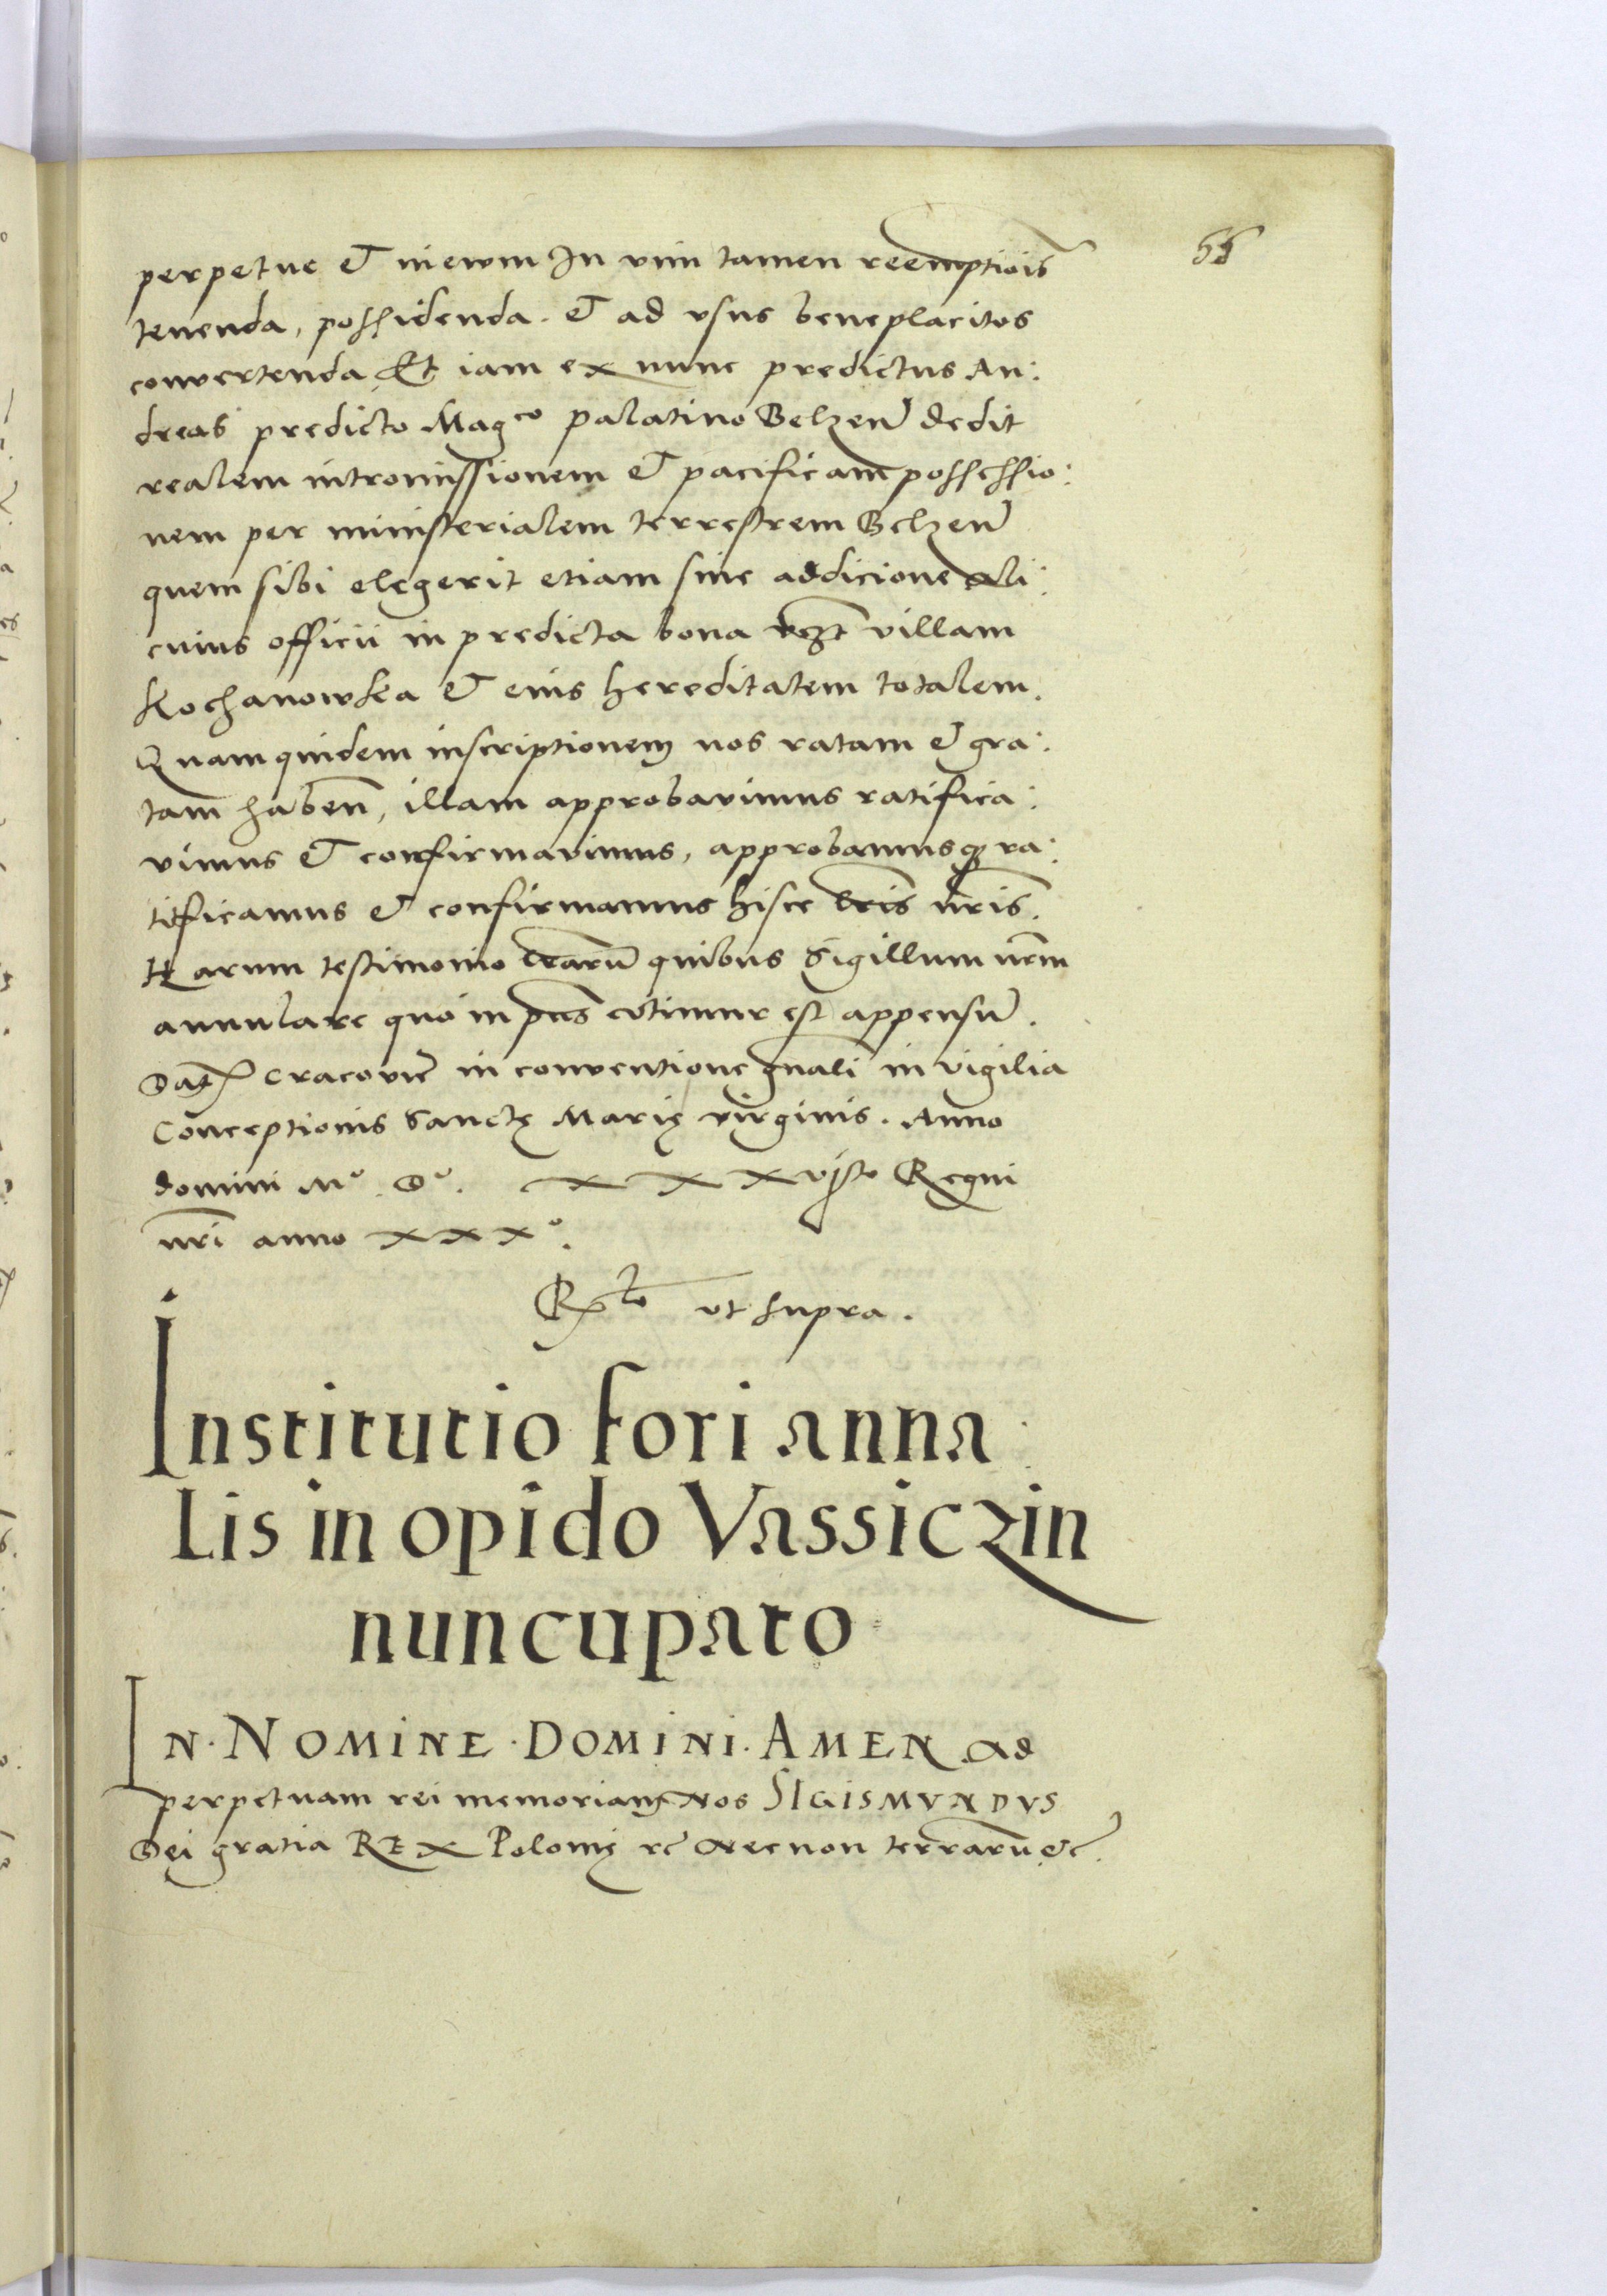 perpetue & in ewm In vim tamen reemptiōis
tenenda, possidenda. & ad vsus beneplacitos
convertenda Et iam ex nunc predictus An:
dreas predicto Mag^co palatino Belzeñ dedit
realem intromissionem & pacificam possessio:
nem per ministerialem terrestrem Belzeñ
quem sibi elegerit etiam sine addicione ali:
cuius officii in predicta bona villam
Kochanowka & eius hereditatem totalem.
Quamquidem inscriptionem nos ratam & gra:
tam habeñ, illam approbavimus ratifica:
vimus & confirmavimus, approbamusq ra:
tificamus & confirmamus hisce lr̄is nr̄is.
Harum testimonio lrarū quibus Sigillum nr̄m
annulare quo in pn̄s vtimur est appensū.
Dat Cracovie in conventione gnāli in vigilia
Conceptionis Sanctę Marię virginis. Anno
domini Mº. Dº. xxxvjto Regni
nr̄i anno xxxº.
R^to vt supra.
Institutio fori anna
Lis in opido Vassiczin
nuncupato
IN·NOMINE·DOMINI·AMEN Ad
perpetuam rei memoriam Nos SIGISMVNDVS
Dei gratia REX Polonię rc̄ Necnon terrarū &c̄.